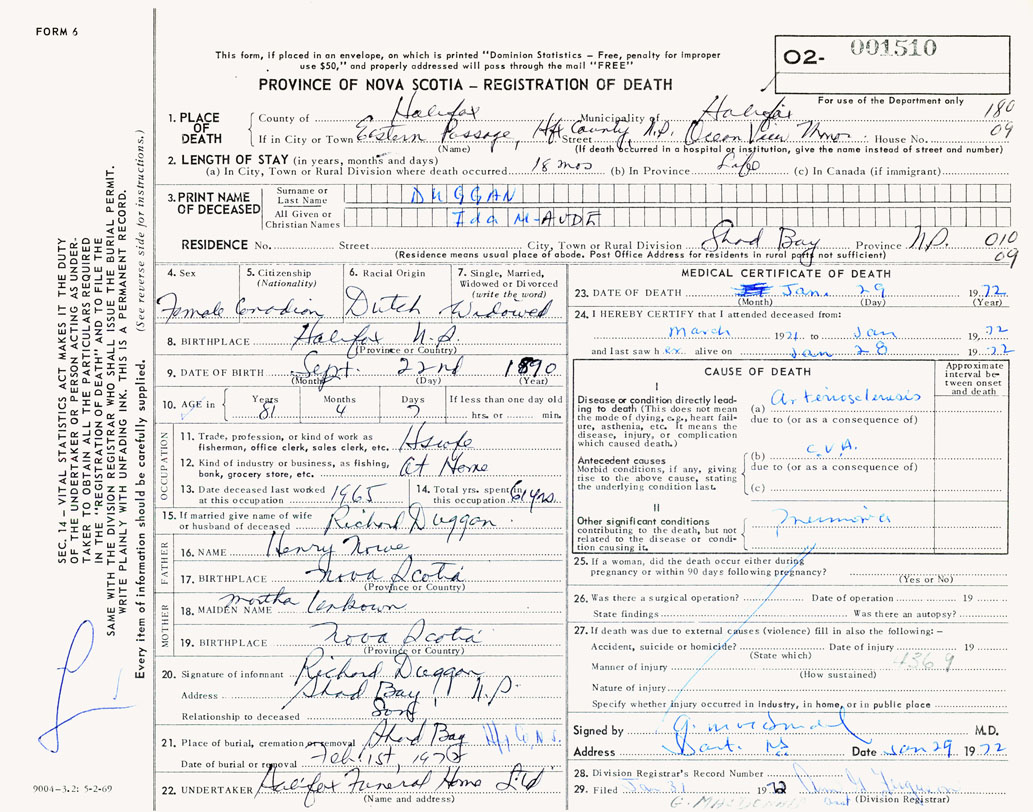 FORM 6
This form, if placed in an envelope, on which is printed "Dominion Statistics – Free, penalty for improper
use $50," and properly addressed will pass through the mail "FREE"
PROVINCE OF NOVA SCOTIA – REGISTRATION OF DEATH
O2- 001510
For use of the Department only
1. PLACE OF DEATH County of Halifax Municipality of Halifax 180
If in City or Town Eastern Passage, Hfx County N.S. Street Ocean View House No. 09
(Name) (If death occurred in a hospital or institution, give the name instead of street and number)
2. LENGTH OF STAY (in years, months and days)
(a) In City, Town or Rural Division where death occurred 18 mos (b) In Province Life (c) In Canada (if immigrant)
3. PRINT NAME OF DECEASED
Surname or Last Name DUGGAN
All Given or Christian Names Ida MAUDE
RESIDENCE No. Street City, Town or Rural Division Shad Bay Province N.S. 010
(Residence means usual place of abode. Post Office Address for residents in rural parts not sufficient) 09
4. Sex Female
5. Citizenship (Nationality) Canadian
6. Racial Origin Dutch
7. Single, Married, Widowed or Divorced (write the word) Widowed
8. BIRTHPLACE Halifax N.S.
(Province or Country)
9. DATE OF BIRTH Sept. 22nd 1890
(Month) (Day) (Year)
10. AGE in Years 81 Months 4 Days 7 If less than one day old hrs. or min.
OCCUPATION
11. Trade, profession, or kind of work as fisherman, office clerk, sales clerk, etc. Hswife
12. Kind of industry or business, as fishing, bank, grocery store, etc. At Home
13. Date deceased last worked at this occupation 1965
14. Total yrs. spent in this occupation 61 yrs
15. If married give name of wife or husband of deceased Richard Duggan
FATHER
16. NAME Henry Nowe
17. BIRTHPLACE Nova Scotia
(Province or Country)
MOTHER
18. MAIDEN NAME Martha Unkown
19. BIRTHPLACE Nova Scotia
(Province or Country)
20. Signature of informant Richard Duggan
Address Shad Bay N.S.
Relationship to deceased Son
21. Place of burial, cremation or removal Shad Bay
Date of burial or removal Feb 1st, 1972
22. UNDERTAKER Halifax Funeral Home Ltd
(Name and address)
MEDICAL CERTIFICATE OF DEATH
23. DATE OF DEATH Jan. 29 1972
(Month) (Day) (Year)
24. I HEREBY CERTIFY that I attended deceased from:
March 1971 to Jan 1972
and last saw her alive on Jan 28 1972
CAUSE OF DEATH
Approximate interval between onset and death
I
Disease or condition directly leading to death (This does not mean the mode of dying, e.g., heart failure, asthenia, etc. It means the disease, injury, or complication which caused death.)
(a) Arteriosclerosis
due to (or as a consequence of)
Antecedent causes
Morbid conditions, if any, giving rise to the above cause, stating the underlying condition last.
(b) C.V.A.
due to (or as a consequence of)
(c)
II
Other significant conditions contributing to the death, but not related to the disease or condition causing it.
Pneumonia
25. If a woman, did the death occur either during pregnancy or within 90 days following pregnancy?
(Yes or No)
26. Was there a surgical operation? Date of operation 19
State findings Was there an autopsy?
27. If death was due to external causes (violence) fill in also the following: –
Accident, suicide or homicide? Date of injury 19
(State which)
Manner of injury 436 9
(How sustained)
Nature of injury
Specify whether injury occurred in Industry, in home, or in public place
Signed by M.D.
Address Dart. NS Date Jan 29 1972
28. Division Registrar's Record Number
29. Filed Jan 31 1972
(Division Registrar)
SEC. 14 – VITAL STATISTICS ACT MAKES IT THE DUTY
OF THE UNDERTAKER OR PERSON ACTING AS UNDER-
TAKER TO OBTAIN ALL THE PARTICULARS REQUIRED
IN THE "REGISTRATION OF DEATH" AND TO FILE THE
SAME WITH THE DIVISION REGISTRAR WHO SHALL ISSUE THE BURIAL PERMIT.
WRITE PLAINLY WITH UNFADING INK. THIS IS A PERMANENT RECORD.
Every item of information should be carefully supplied. (See reverse side for instructions.)
9004–3.2: 5-2-69